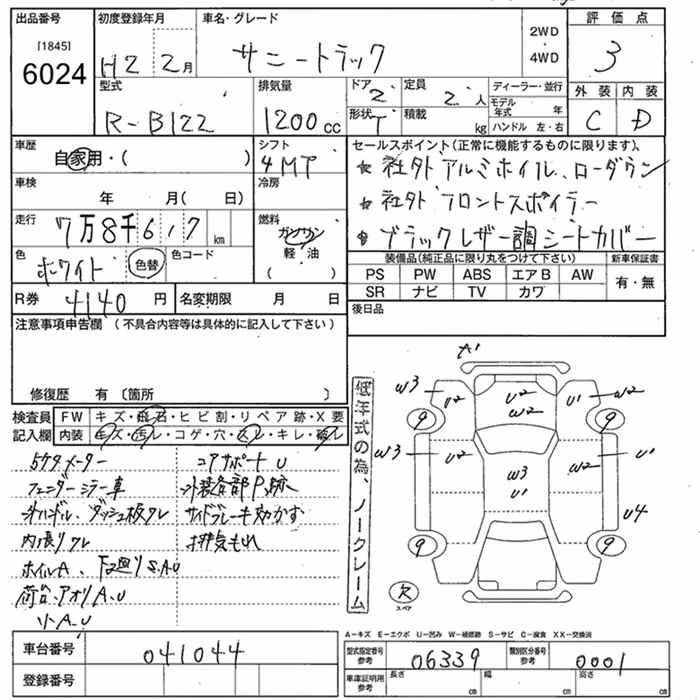 出品番号 初度登録年月 車名・グレード 2WD ・ 4WD 評価点
[1845]
6024 H2 2月 サニートラック 3
型式 排気量 ドア 定員 ディーラー・並行 外装 内装
R-B122 1200cc 2 2人 モデル年式 年 C D
形状 T 積載 kg ハンドル 左・右
車歴 シフト セールスポイント(正常に機能するものに限ります)。
自家用・( ) 4MT ★社外アルミホイル、ローダウン
車検 冷房
年 月( 日) ★社外フロントスポイラー
走行 燃料
7万8千617km ガソリン ★ブラックレザー調シートカバー
色 色コード 軽・油
ホワイト 色替 ( )
装備品(純正品に限り丸をつけて下さい) 新車保証書
PS PW ABS エアB AW 有・無
SR ナビ TV カワ
R券 4140円 名変期限 月 日 後日品
注意事項申告欄 (不具合内容等は具体的に記入して下さい)
修復歴 有 〔箇所 〕
検査員 FW キズ・飛石・ヒビ割・リペア跡・X要
記入欄 内装 キズ・汚レ・コゲ・穴・スレ・キレ・破レ
5ケタメーター コアサポートU
フェンダーミラー車 外装各部P跡
ハンドル、ダッシュ板ワレ サイドブレーキ効かず
内張りワレ 排気もれ
ホイルA、下廻りS.A.U
荷台・アオリA.U
小A.U
低年式の為、ノークレーム
A1
W3 U2 U2 W2 U1 W2
9 9
W3 U2 W3 U1 W2 U1
U4
9 9
欠
スペア
A-キズ E-エクボ U-凹み W-補修跡 S-サビ C-腐食 XX-交換済
車台番号 041044 型式指定番号 参考 06339 類別区分番号 参考 0001
登録番号 車庫証明用 参考 長さ cm 幅 cm 高さ cm